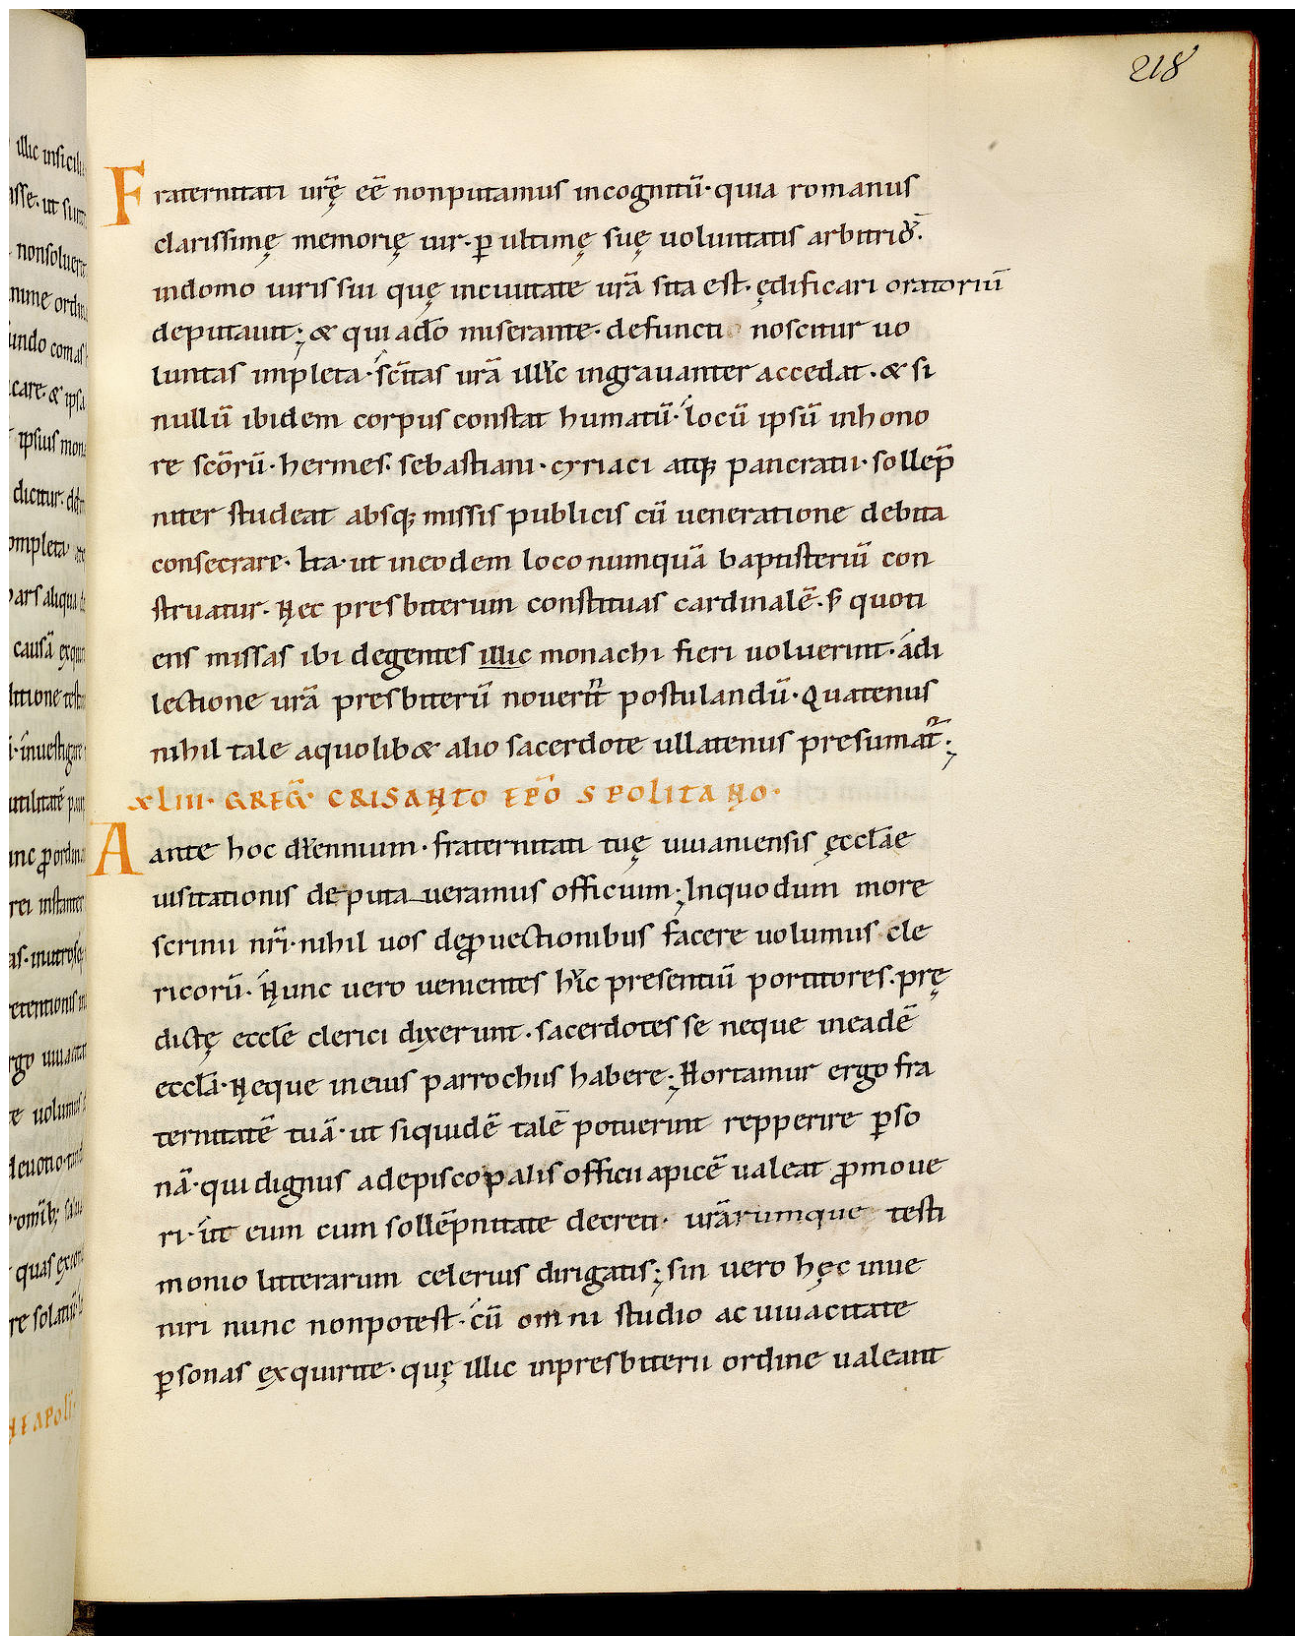 218
Fraternitati urę̄ eē nonputamus incognitū· quia romanus
clarissimę memorię uir· ꝑ ultimę suę uoluntatis arbitriō·
indomo iuris sui quę inciuitate urā sita est· ędificari oratoriū
deputauit; & qui ado̅ miserante· defuncti noscitur uo
luntas impleta· sc̄itas urā illic ingrauanter accedat· & si
nullū ibidem corpus constat humatū· locū ipsū inhono
re scōrū· hermes· sebastiani· cyriaci atq; pancratii· sollēp
niter studeat absq; missis publicis cū ueneratione debita
consecrare· Ita· ut ineodem loco numquā baptisteriū con
struatur· Nec presbiterum constituas cardinalē· s̄ quoti
ens missas ibi degentes illic monachi fieri uoluerint· adi
lectione urā presbiterū nouerīt postulandū· Quatenus
nihil tale aquolib& alio sacerdote ullatenus presumat᷑;
XLIII· GREḠ· CRISANTO EPŌ SPOLITANO·
Aante hoc driennium· fraternitati tuę uiuaniensis ęcclāe
uisitationis deputaueramus officium; Inquodum more
scrinii nrī· nihil uos deꝓuectionibus facere uolumus cle
ricorū· Nunc uero uenientes hic presentiū portitores· prę
dictę ecclē clerici dixerunt· sacerdotes se neque ineadē
ecclā· Neque ineius parrochiis habere; Hortamur ergo fra
ternitatē tuā· ut siquidē talē potuerint repperire ꝑso
nā· qui dignus adepiscopalis officii apicē ualeat ꝓmoue
ri· ut eum cum sollēpnitate decreti· urārumque testi
monio litterarum celerius dirigatis; sin uero hęc inue
niri nunc nonpotest· cū omni studio ac uiuacitate
ꝑsonas exquirite· quę illic inpresbiterii ordine ualeant